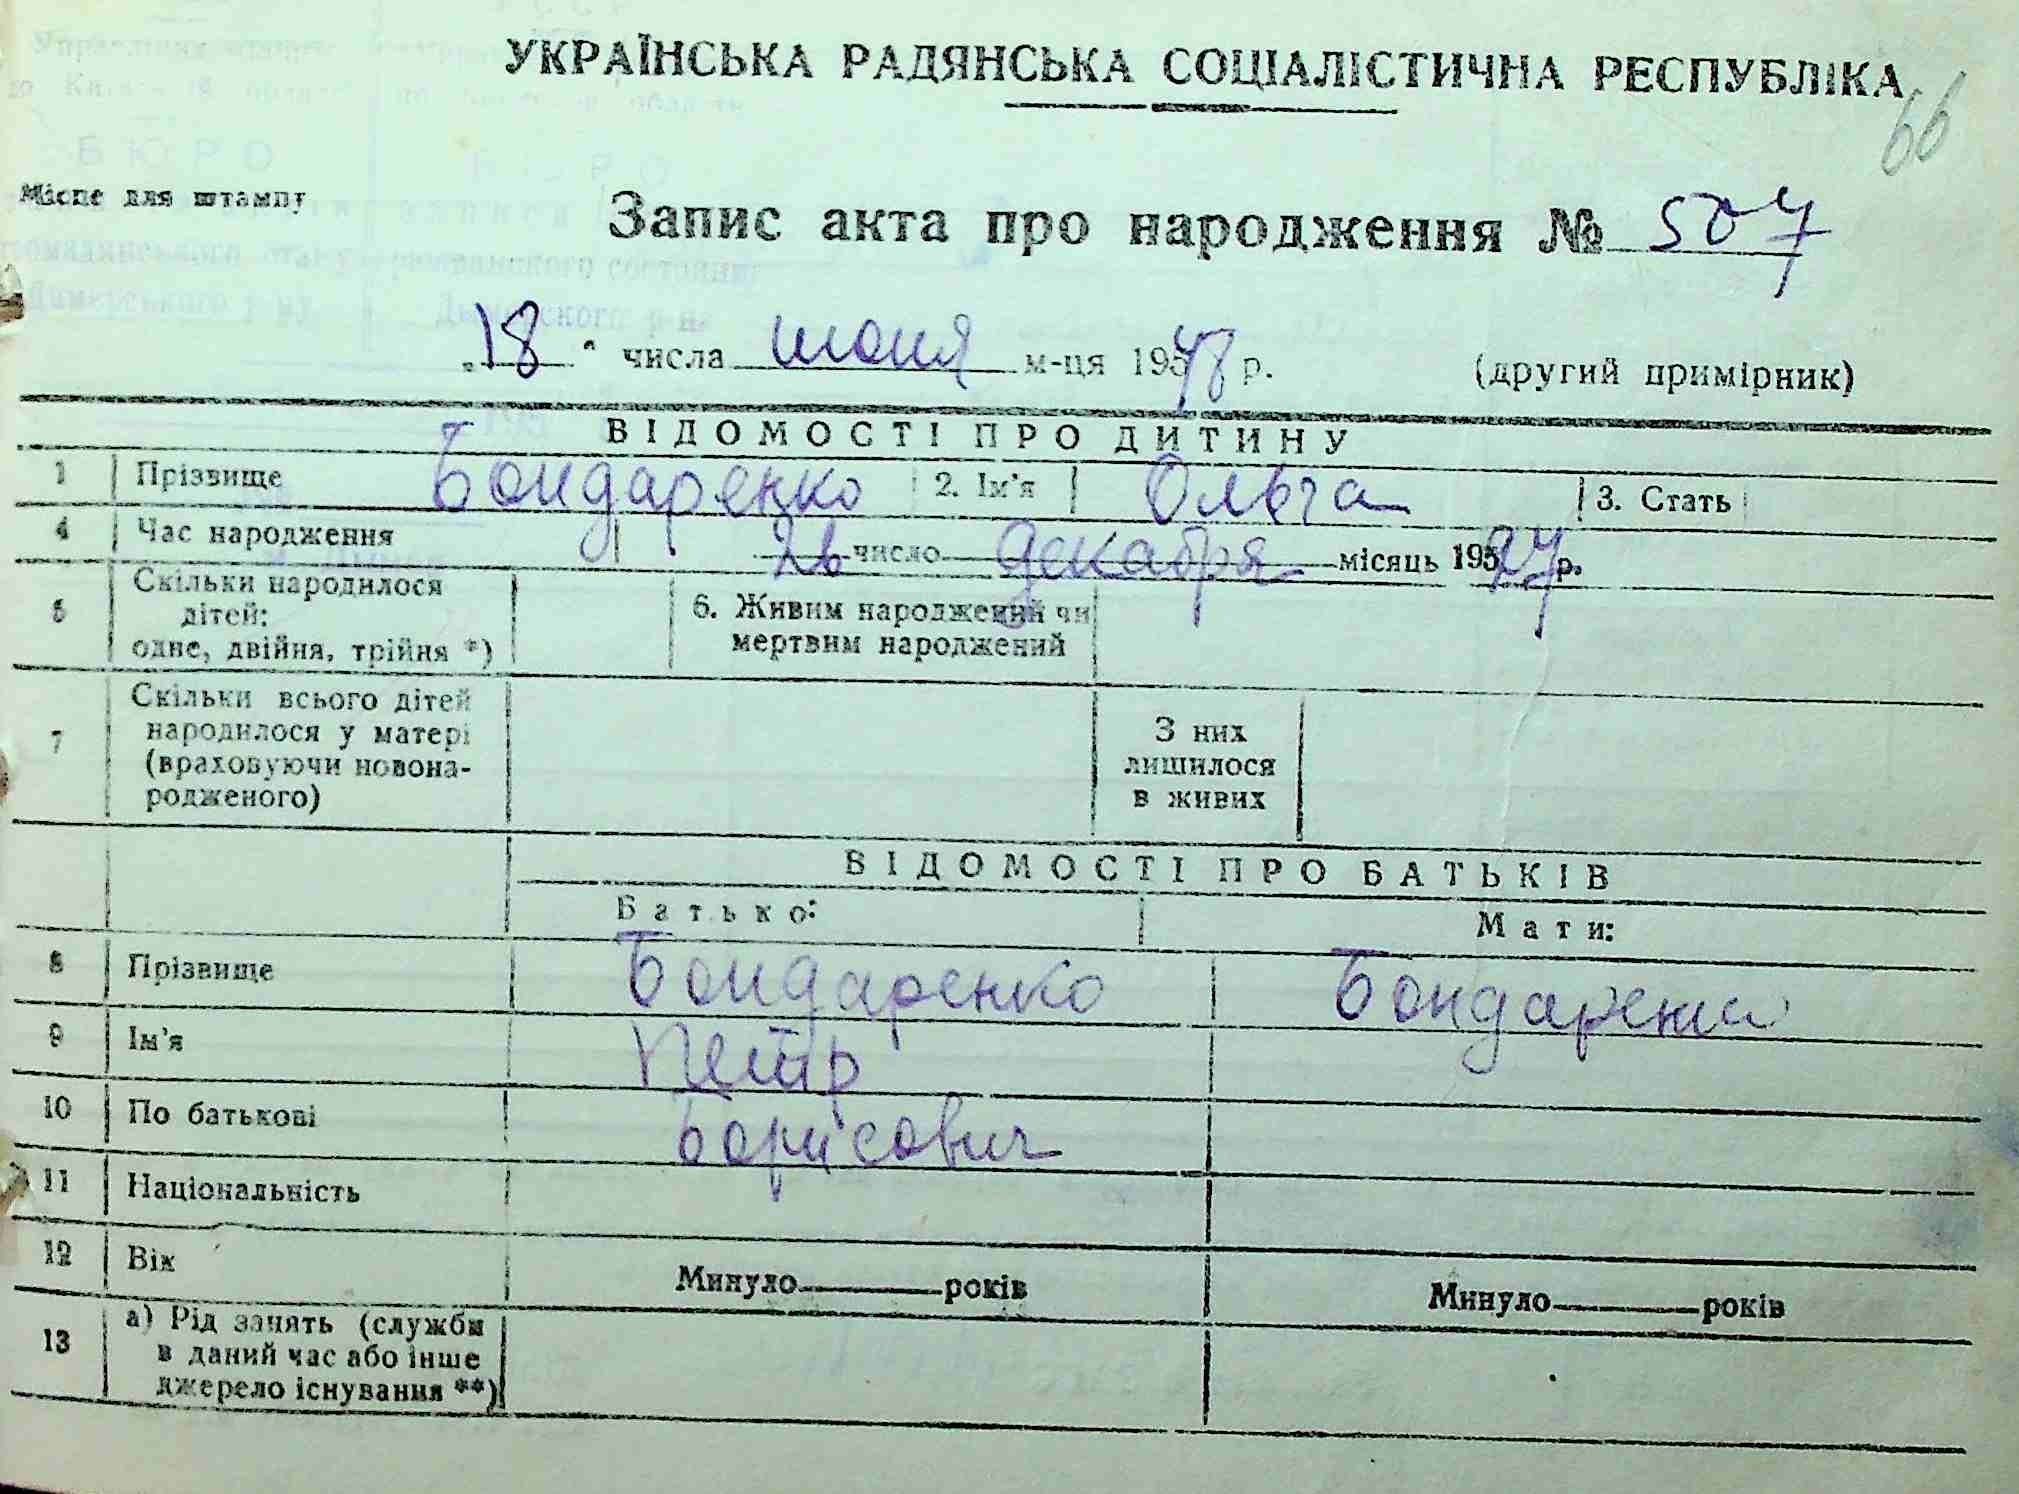 УКРАЇНСЬКА РАДЯНСЬКА СОЦІАЛІСТИЧНА РЕСПУБЛІКА
66
Місце для штампу
Запис акта про народження № 507
„18“ числа июня м-ця 1948 р. (другий примірник)
ВІДОМОСТІ ПРО ДИТИНУ
1 Прізвище Бондаренко 2. Ім'я Ольга 3. Стать
4 Час народження 26 число декабря місяць 1927 р.
5 Скільки народилося дітей: одне, двійня, трійня *) 6. Живим народжений чи мертвим народжений
7 Скільки всього дітей народилося у матері (враховуючи новонародженого) З них лишилося в живих
ВІДОМОСТІ ПРО БАТЬКІВ
Батько: Мати:
8 Прізвище Бондаренко Бондаренко
9 Ім'я Петр
10 По батькові Борисович
11 Національність
12 Вік Минуло років Минуло років
13 а) Рід занять (служби в даний час або інше джерело існування **)